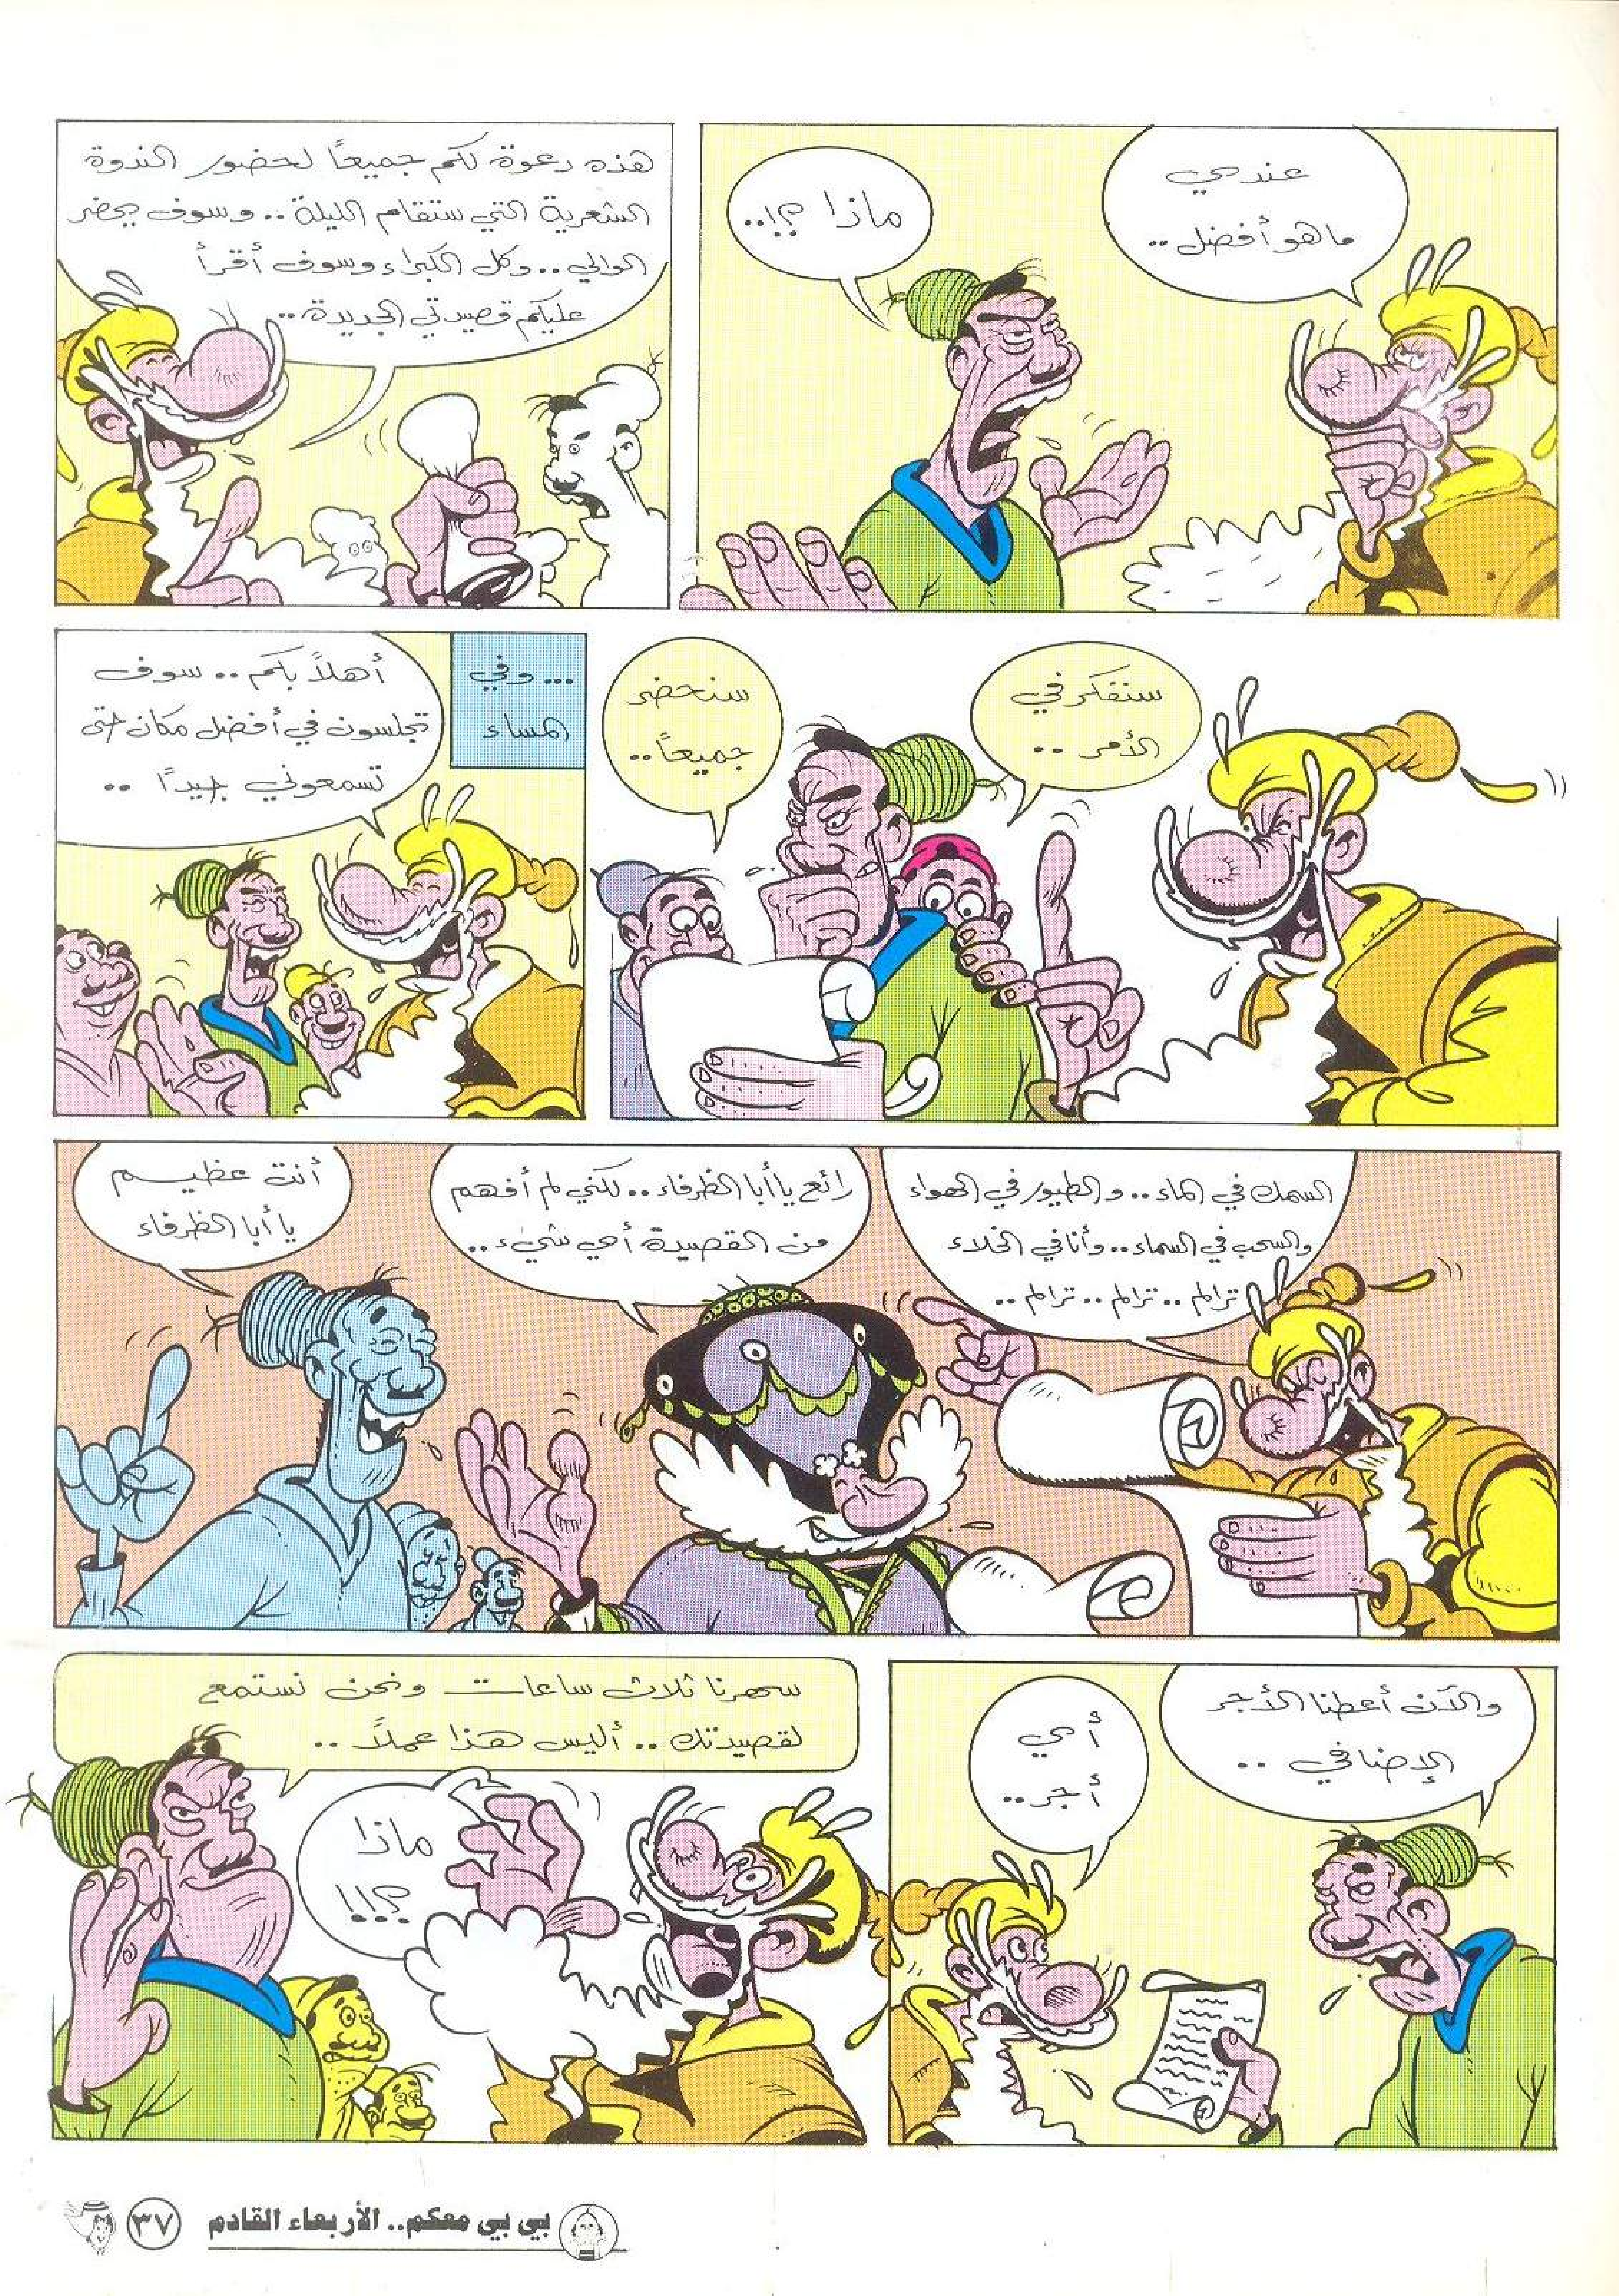 عندي
ما هو أفضل ..
ماذا ؟!..
هذه دعوة لكم جميعاً لحضور الندوة
الشعرية التي ستقام الليلة .. وسوف يحضر
الوالي .. وكل الكبراء وسوف أقرأ
عليكم قصيدتي الجديدة ..
سنفكر في
الأمر ..
سنحضر
جميعاً ..
... وفي
المساء
أهلاً بكم .. سوف
تجلسون في أفضل مكان حتى
تسمعوني جيداً ..
السمك في الماء .. والطيور في الهواء
والسحب في السماء .. وأنا في الخلاء
ترالم .. ترالم .. ترالم ..
رائع يا أبا الظرفاء .. لكني لم أفهم
من القصيدة أي شيء ..
أنت عظيم
يا أبا الظرفاء
والآن أعطنا الأجر
الإضافي ..
أي
أجر ..
سهرنا ثلاث ساعات ونحن نستمع
لقصيدتك .. أليس هذا عملاً ..
ماذا
؟!!
بي بي معكم.. الأربعاء القادم
٣٧